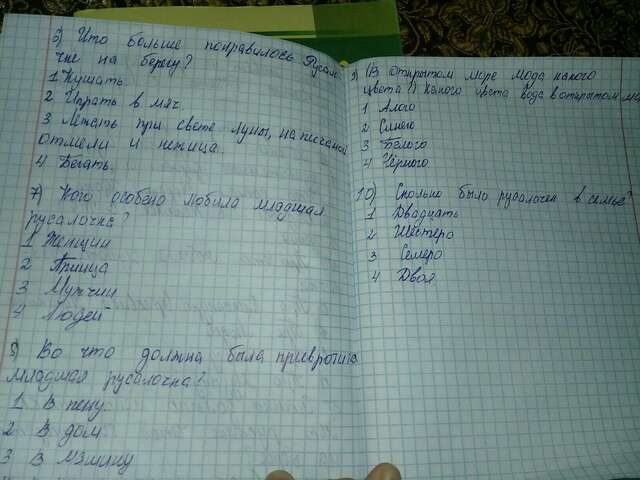 5) Что больше понравилось Русало
чке на берегу?
1 Кушать.
2 Играть в мяч.
3 Лежать при свете луны, на песчаной
отмели и
4 Бегать.
7) Кого особено любила младшая
русалочка?
1 Женщин
2 Птица
3 Мужчин
4 Людей
8) Во что должна была превротится
младшая русалочка?
1 В пену.
2 В дом
3 В
9) В открытом море мода какого
цвета какого цвета вода в открытом
1 Алого
2 Синего
3 Белого
4 Чёрного
10) Сколько было русалочек в семье?
1 Двадцать
2 Шестеро
3 Семеро
4 Двоя